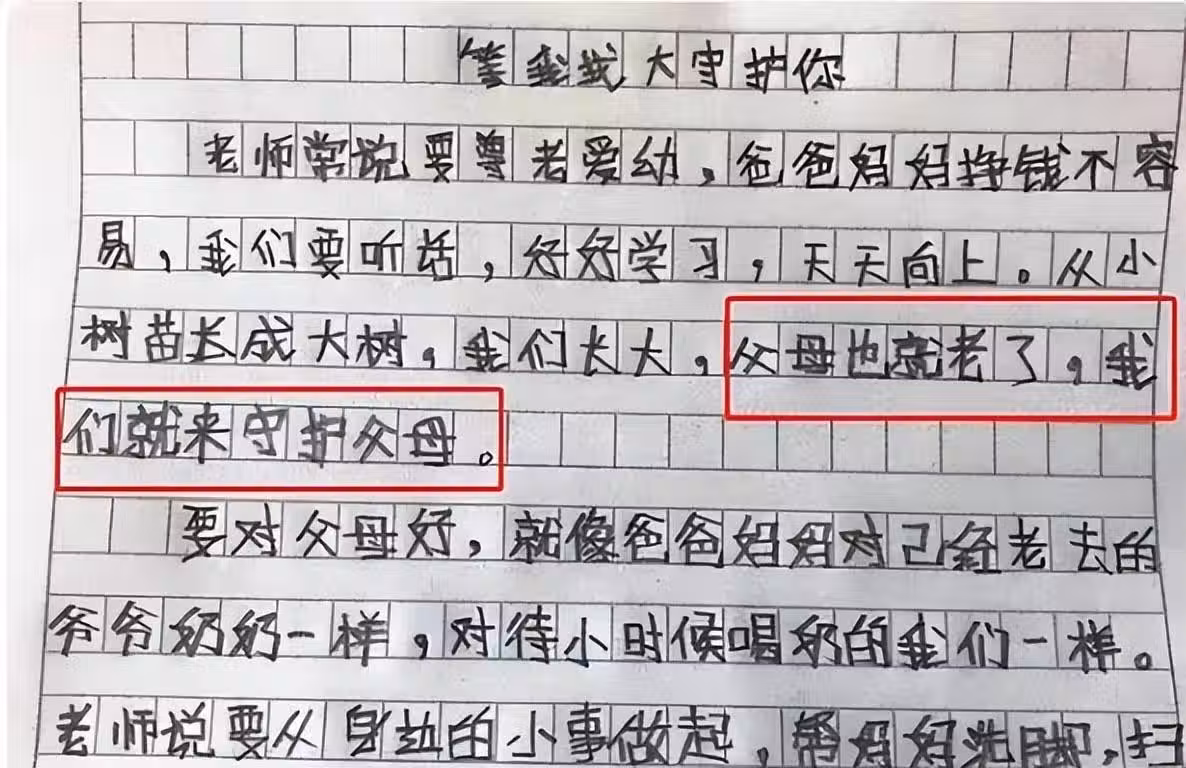 等我我大守护你
老师常说要尊老爱幼，爸爸妈妈挣钱不容
易，我们要听话，好好学习，天天向上。从小
树苗长成大树，我们长大，父母也就老了，我
们就来守护父母。
要对父母好，就像爸爸妈妈对己经老去的
爷爷奶奶一样，对待小时候喝奶的我们一样。
老师说要从身边的小事做起，帮妈妈洗脚，扫